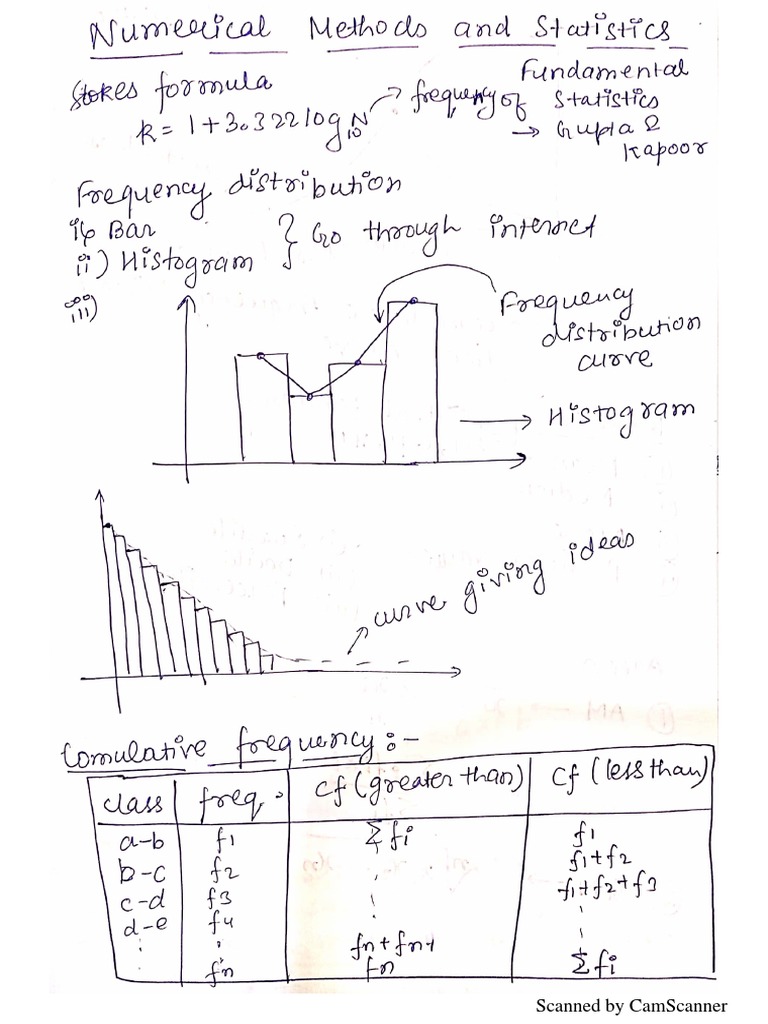 Numerical Methods and Statistics
Stokes formula
k = 1+3.322 log₁₀N → frequency of
Fundamental
Statistics
→ Gupta &
Kapoor
Frequency distribution
i) Bar
ii) Histogram } Go through internet
iii)
Frequency
distribution
curve
→ Histogram
curve giving ideas
Comulative frequency:-
class freq. Cf (greater than) Cf (less than)
a-b f1 Σfi f1
b-c f2 f1+f2
c-d f3 f1+f2+f3
d-e f4
fn + fn+
fn fn Σfi
Scanned by CamScanner